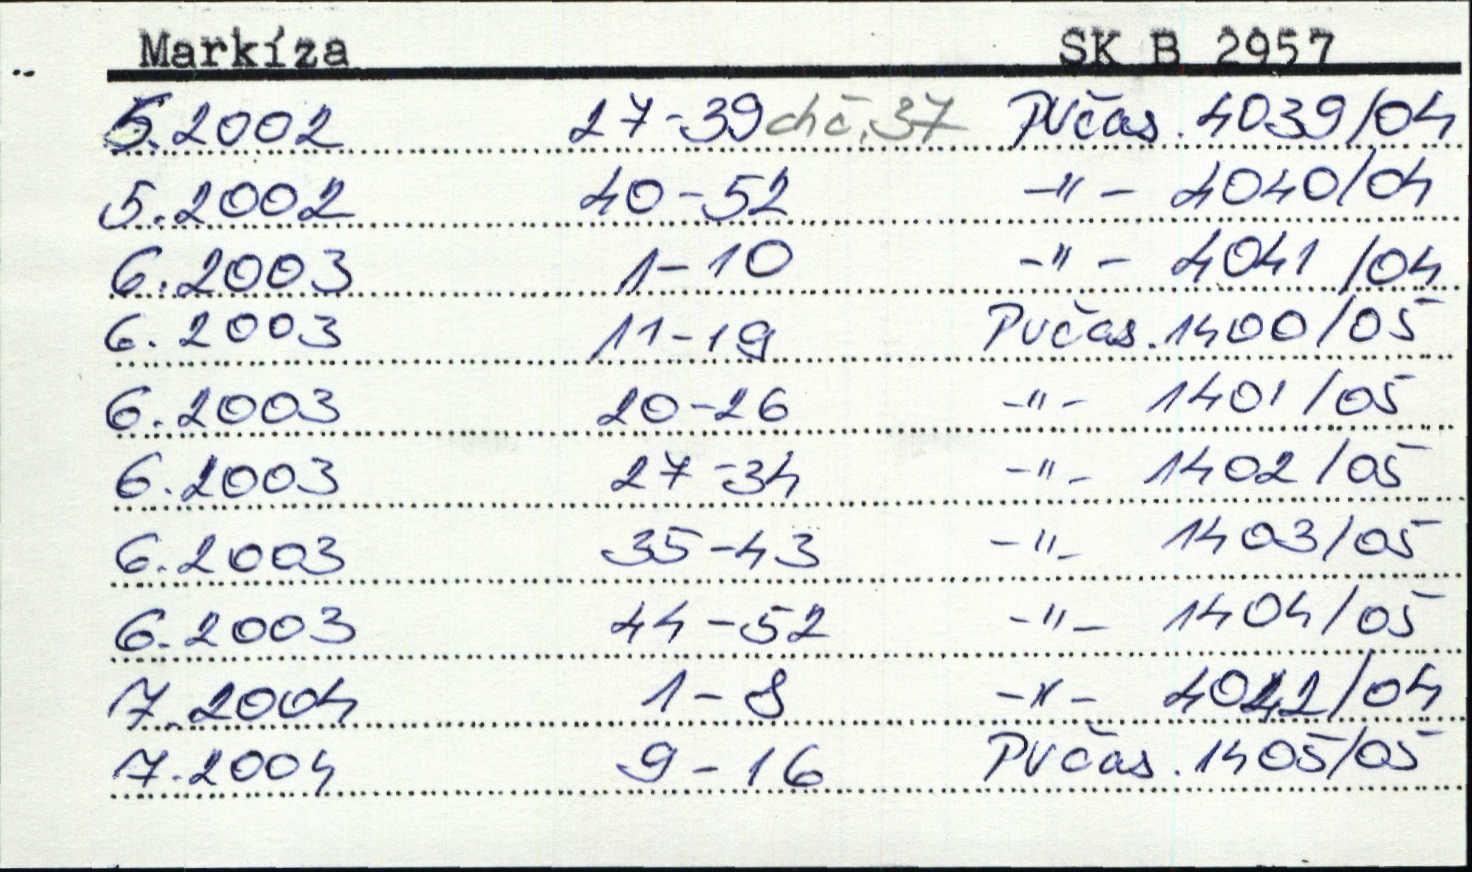 Markíza SK B 2957
5.2002 27-39 chč.37 PVčas. 4039/04
5.2002 40-52 -"- 4040/04
6.2003 1-10 -"- 4041/04
6.2003 11-19 PVčas. 1400/05
6.2003 20-26 -"- 1401/05
6.2003 27-34 -"- 1402/05
6.2003 35-43 -"- 1403/05
6.2003 44-52 -"- 1404/05
7.2004 1-8 -"- 4042/04
7.2004 9-16 PVčas. 1405/05